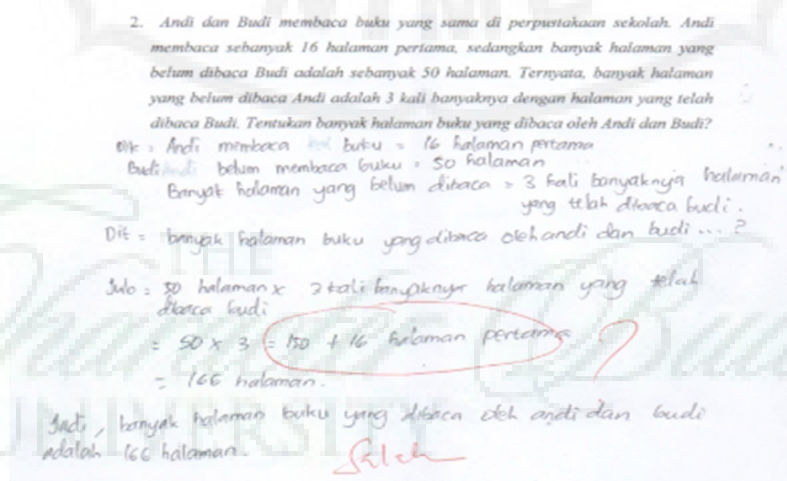 2. Andi dan Budi membaca buku yang sama di perpustakaan sekolah. Andi
membaca sebanyak 16 halaman pertama, sedangkan banyak halaman yang
belum dibaca Budi adalah sebanyak 50 halaman. Ternyata, banyak halaman
yang belum dibaca Andi adalah 3 kali banyaknya dengan halaman yang telah
dibaca Budi. Tentukan banyak halaman buku yang dibaca oleh Andi dan Budi?
Dik : Andi membaca buku = 16 halaman pertama
Budi belum membaca buku = 50 halaman
Banyak halaman yang belum dibaca = 3 kali banyaknya halaman
yang telah dibaca budi.
Dit = banyak halaman buku yang dibaca oleh andi dan budi ... ?
Jwb = 50 halaman x 3 kali banyaknya halaman yang telah
dibaca budi
= 50 x 3 = 150 + 16 halaman pertama ?
= 166 halaman.
Jadi, banyak halaman buku yang dibaca oleh andi dan budi
adalah 166 halaman.
Salah
THE
UNIVERSITY